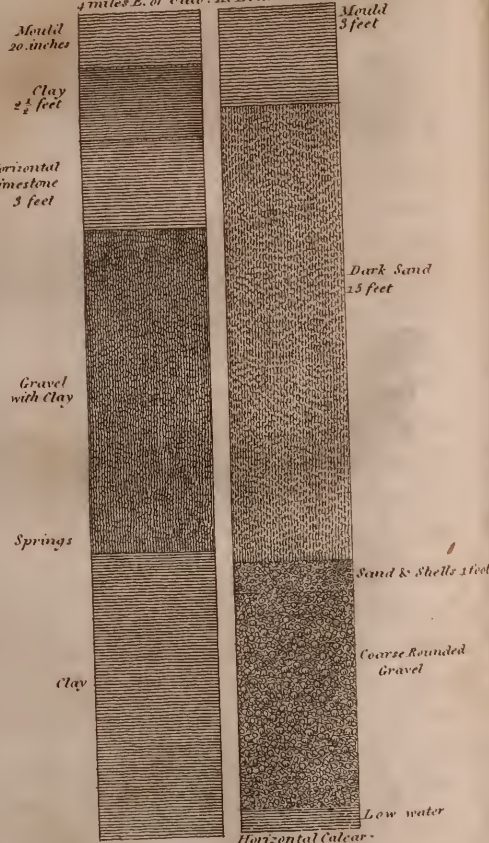 4 miles E. of
Mould
20 inches
Clay
2 1/2 feet
Horizontal
Limestone
3 feet
Gravel
with Clay
Springs
Clay
Mould
3 feet
Dark Sand
15 feet
Sand & Shells 1 foot
Coarse Rounded
Gravel
Low water
Horizontal Calcar-